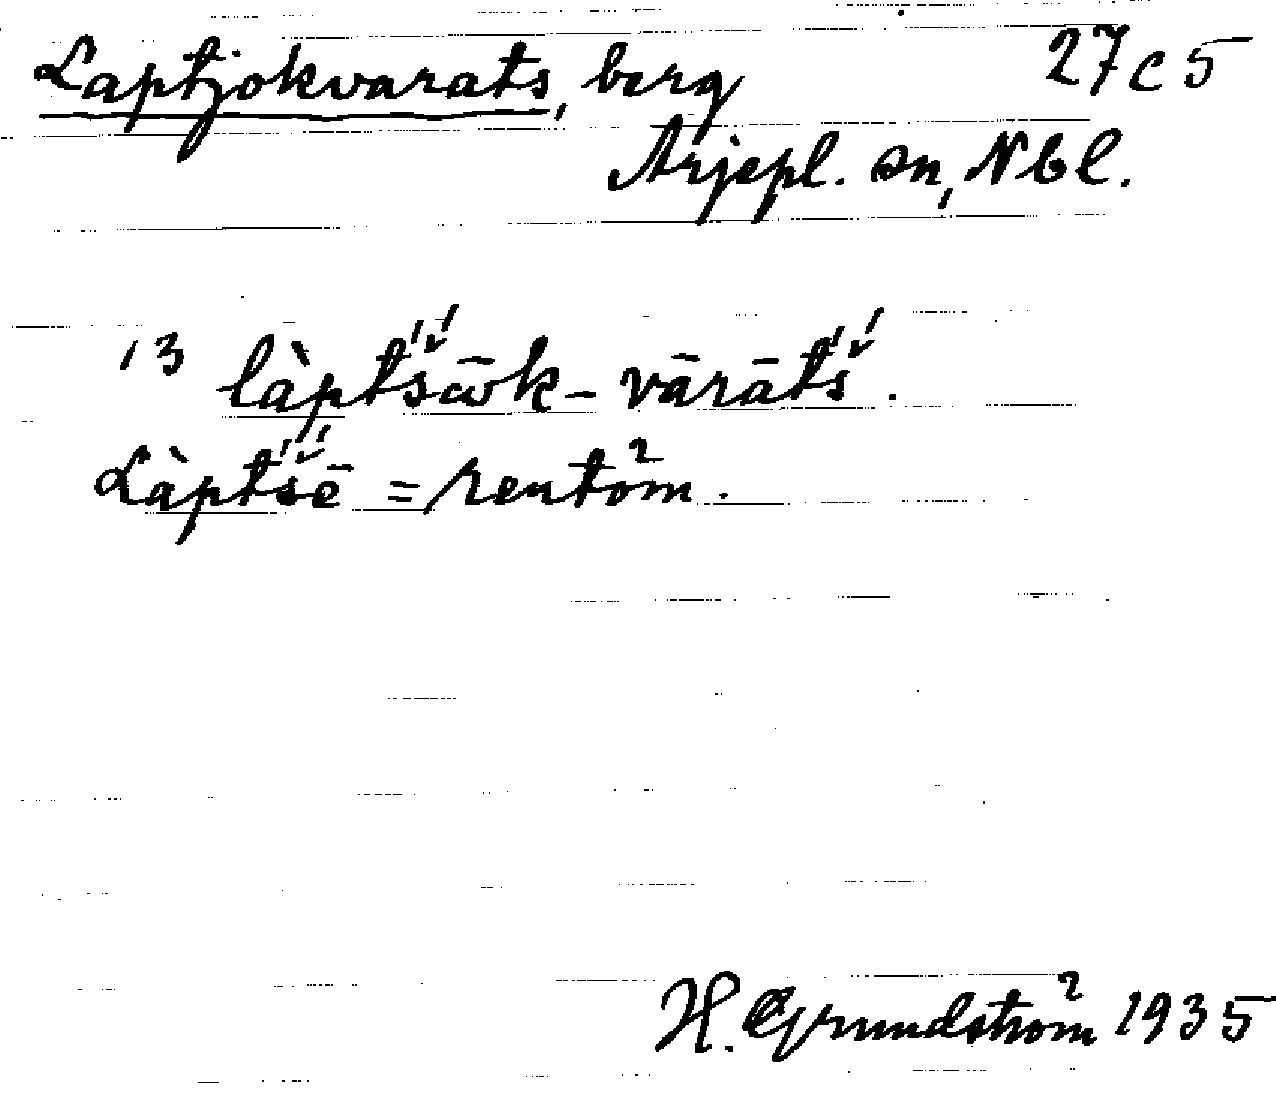 Laptjokvarats, berg 27 c 5
Arjepl. sn, Nbl.
13 làpt́š́ω̄k-vārāt́š́.
Làpt́š́ē = rentöm.
H. Grundström 1935